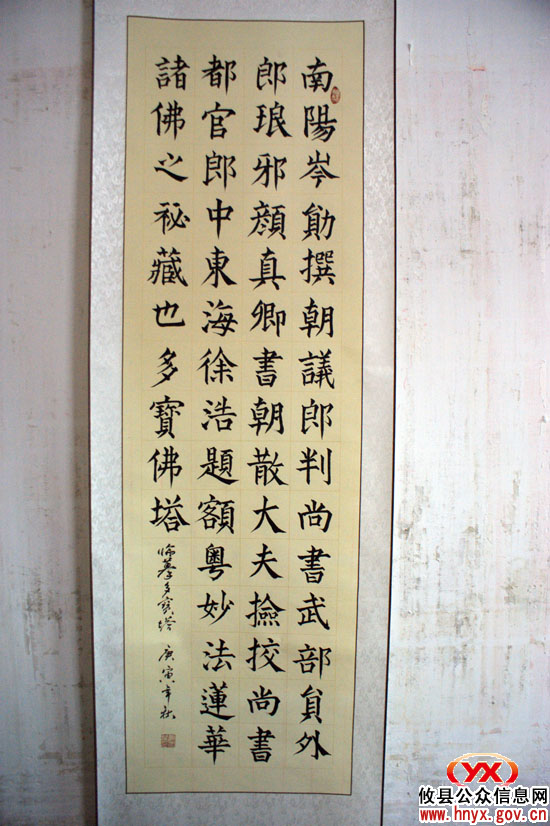 南陽岑勛撰朝議郎判尚書武部貟外
郎琅邪顔真卿書朝散大夫撿挍尚書
都官郎中東海徐浩題額粤妙法蓮華
諸佛之祕藏也多寶佛塔
臨摹多寶塔 庚寅年秋
YX
攸县公众信息网
www.hnyx.gov.cn